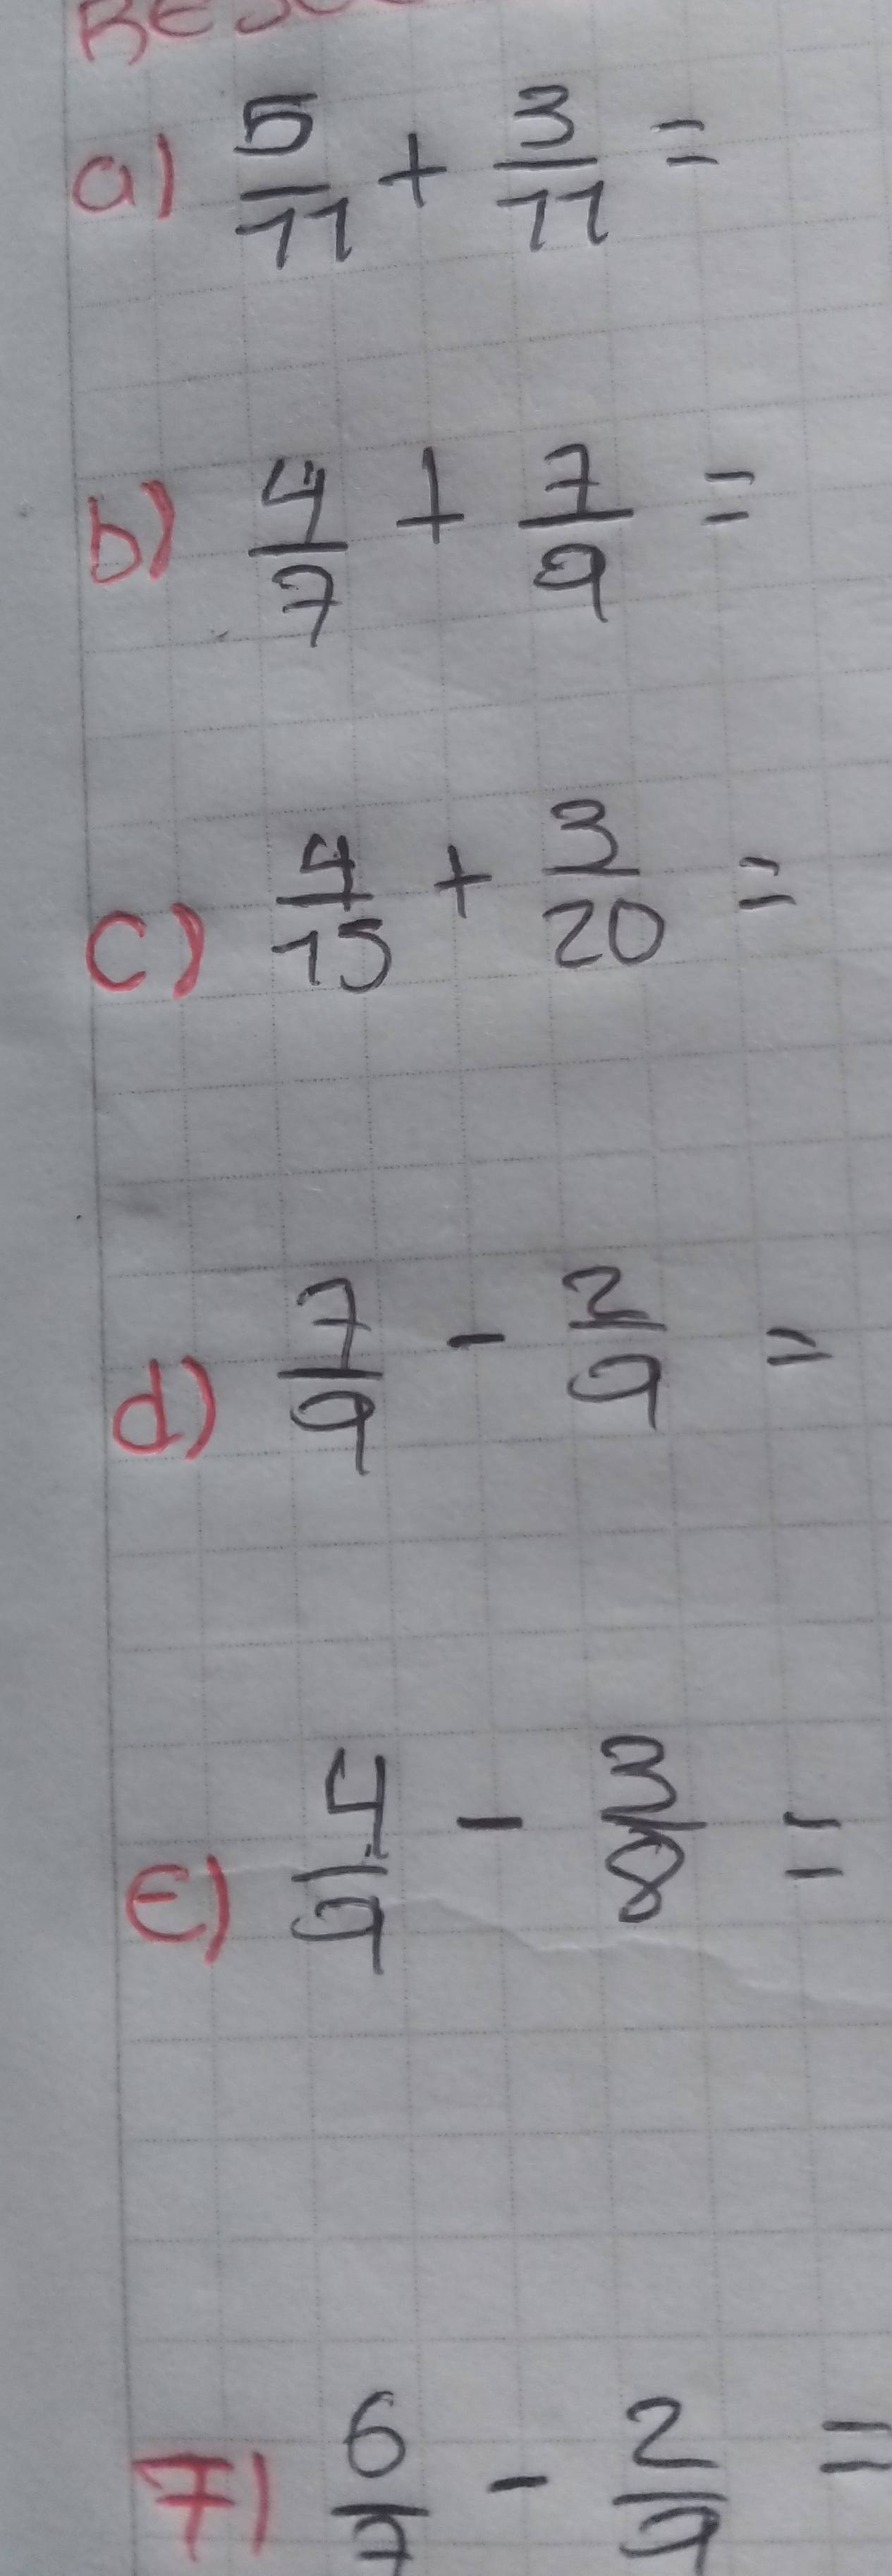 a) 5/11 + 3/11 =
b) 4/7 + 7/9 =
c) 4/15 + 3/20 =
d) 7/9 - 2/9 =
E) 4/9 - 3/8 =
7) 6/7 - 2/9 =